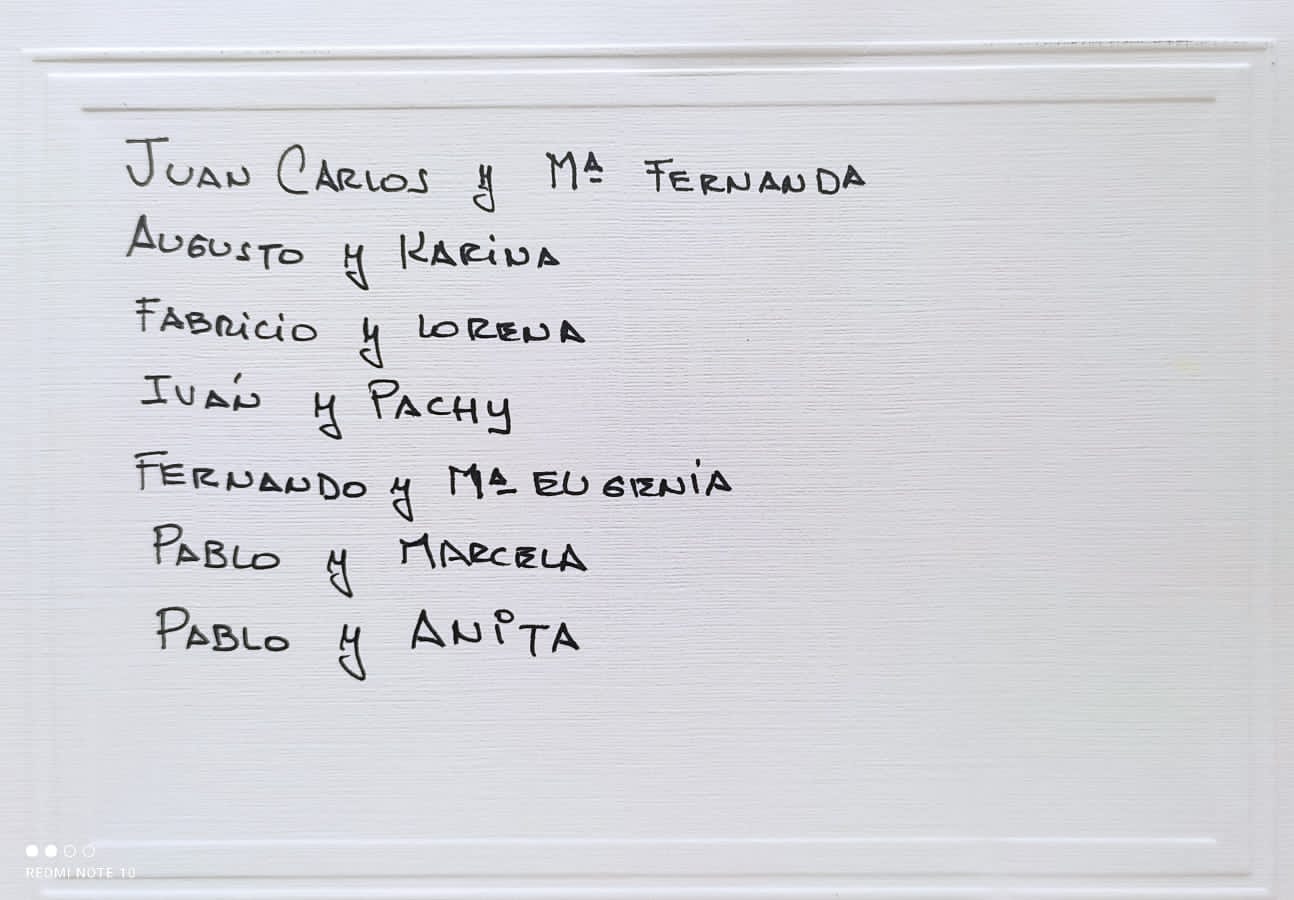 Juan Carlos y Mª Fernanda
Augusto y Karina
Fabricio y Lorena
Iván y Pachy
Fernando y Mª Eugenia
Pablo y Marcela
Pablo y Anita
REDMI NOTE 10